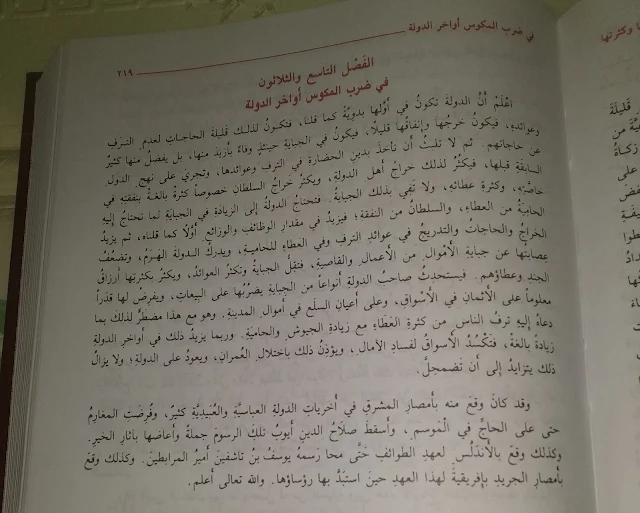 في ضرب المكوس أواخر الدولة
٢١٩
الفَصْل التاسع والثلاثون
في ضرب المكوس أواخر الدولة
اعْلَمْ أنَّ الدولةَ تكونُ في أوَّلها بدويَّةً كما قلنا، فتكونُ لذلك قليلةَ الحاجات لعدم الترف
وعوائدِهِ، فيكونُ خرجُها وإنفاقُها قليلًا، فيكونُ في الجباية حينئذٍ وفاءٌ بأزيدَ منها، بل يفضلُ منها كثيرٌ
عن حاجاتهم. ثم لا تلبثُ أن تأخذَ بدين الحضارة في الترف وعوائدها، وتجري على نهج الدول
السابقةِ قبلها، فيكثُرُ لذلك خراجُ أهل الدولةِ، ويكثرُ خراجُ السلطان خصوصاً كثرةً بالغةً بنفقتِهِ في
خاصَّتِهِ، وكثرةِ عطائِهِ، ولا تَفِي بذلك الجبايةُ. فتحتاجُ الدولةُ إلى الزيادةِ في الجبايةِ لما تحتاجُ إليهِ
الحاميَةُ من العطاءِ، والسلطانُ من النفقة؛ فيزيدُ في مقدار الوظائفِ والوزائعِ أوَّلًا كما قلناه، ثم يزيدُ
الخراجُ والحاجاتُ والتدريجُ في عوائد الترفِ وفي العطاءِ للحامية، ويدركُ الدولةَ الهَرَمُ، وتضعُفُ
عصابتُها عن جبايةِ الأموال من الأعمالِ والقاصيةِ، فتقلُّ الجبايةُ وتكثرُ العوائدُ، ويكثرُ بكثرتِها أرزاقُ
الجندِ وعطاؤهم. فيستحدِثُ صاحبُ الدولةِ أنواعاً من الجبايةِ يضرِبُها على البِياعاتِ، ويفرِضُ لها قدْراً
معلوماً على الأثمانِ في الأسْواقِ، وعلى أعيانِ السلَعِ في أموال المدينةِ. وهو مع هذا مضطرٌّ لذلك بما
دعاهُ إليهِ ترفُ الناس من كثرةِ العَطاءِ مع زيادةِ الجيوشِ والحاميةِ. وربما يزيدُ ذلك في أواخرِ الدولةِ
زيادةً بالغةً، فتَكْسُدُ الأسواقُ لفسادِ الآمالِ، ويؤذِنُ ذلك باختلالِ العُمرانِ، ويعودُ على الدولةِ؛ ولا يزالُ
ذلك يتزايدُ إلى أن تَضمحلَّ.
وقد كانَ وقعَ منه بأمصارِ المشرقِ في أخرياتِ الدولةِ العباسيَّةِ والعُبَيْديَّةِ كثيرٌ، وفُرِضَتِ المغارِمُ
حتى على الحاجِّ في المَوسمِ، وأسقطَ صلَاحُ الدينِ أيوبُ تلكَ الرسومَ جملةً وأعاضَها بآثارِ الخيرِ.
وكذلك وقعَ بالأندلُسِ لعهدِ الطوائفِ حتَّى محا رَسمَهُ يوسفُ بنُ تاشفينَ أميرُ المرابطينَ. وكذلك وقعَ
بأمصارِ الجريدِ بإفريقيةَ لهذا العهدِ حينَ استبَدَّ بها رؤساؤها. والله تعالى أعلم.